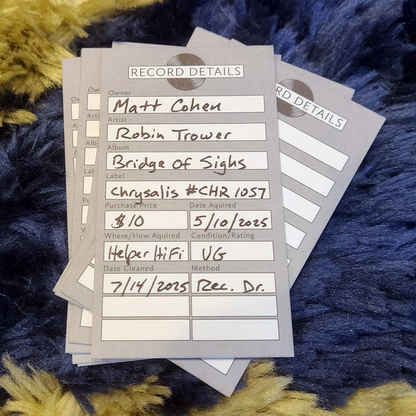 RECORD DETAILS
Owner
Matt Cohen
Artist
Robin Trower
Album
Bridge of Sighs
Label
Chrysalis #CHR 1057
Purchase Price Date Aquired
$10 5/10/2025
Where/How Aquired Condition/Rating
Helper HiFi VG
Date Cleaned Method
7/14/2025 Rec. Dr.
RD DETAILS